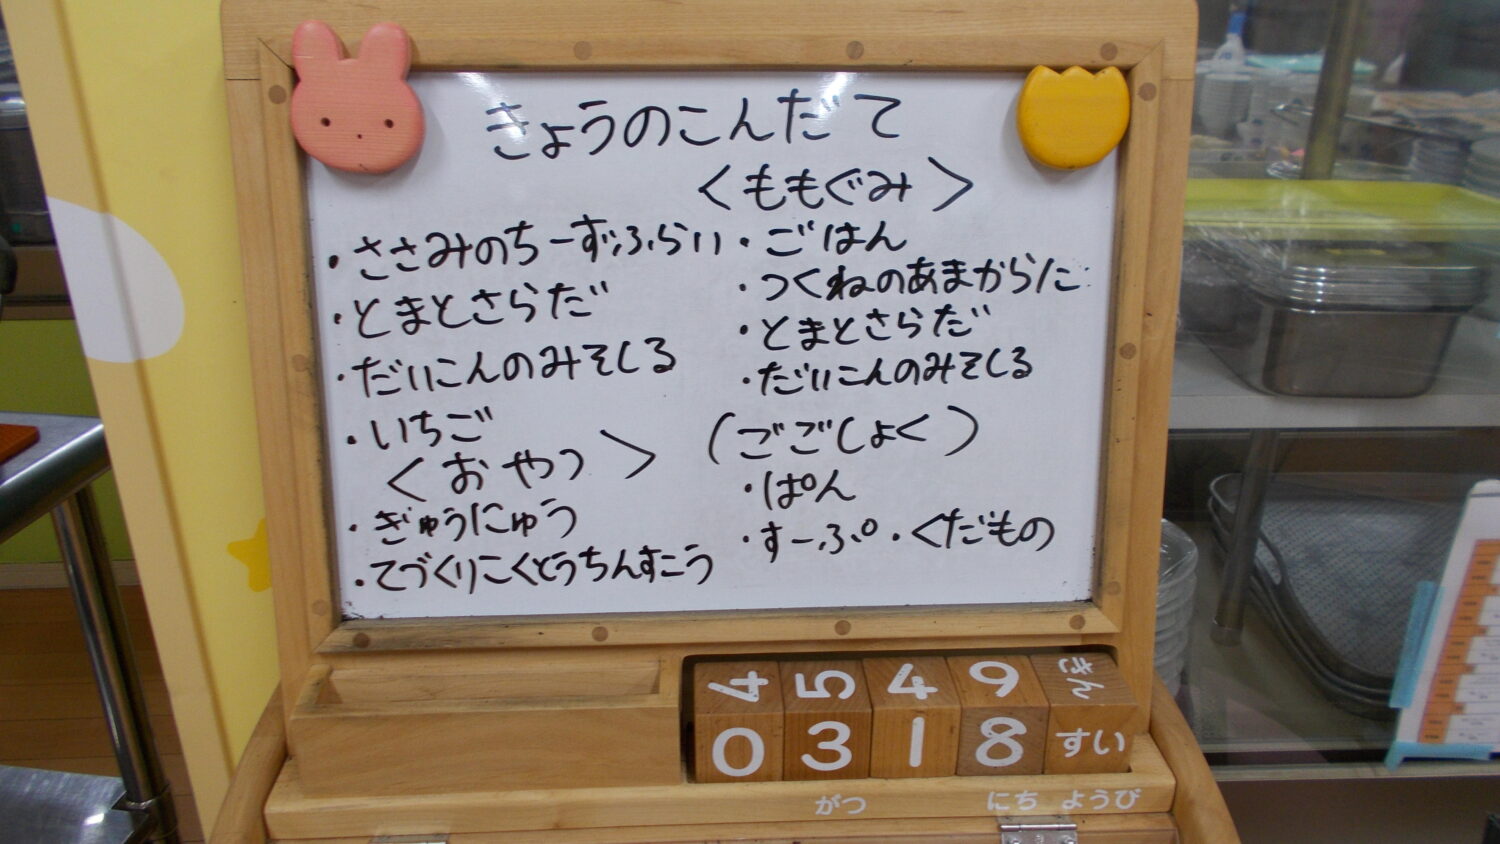 きょうのこんだて
・ささみのちーずふらい
・とまとさらだ
・だいこんのみそしる
・いちご
<おやつ>
・ぎゅうにゅう
・てづくりこくとうちんすこう
<ももぐみ>
・ごはん
・つくねのあまからに
・とまとさらだ
・だいこんのみそしる
(ごごしょく)
・ぱん
・すーぷ・くだもの
4 5 4 9 きん
0 3 1 8 すい
がつ にち ようび